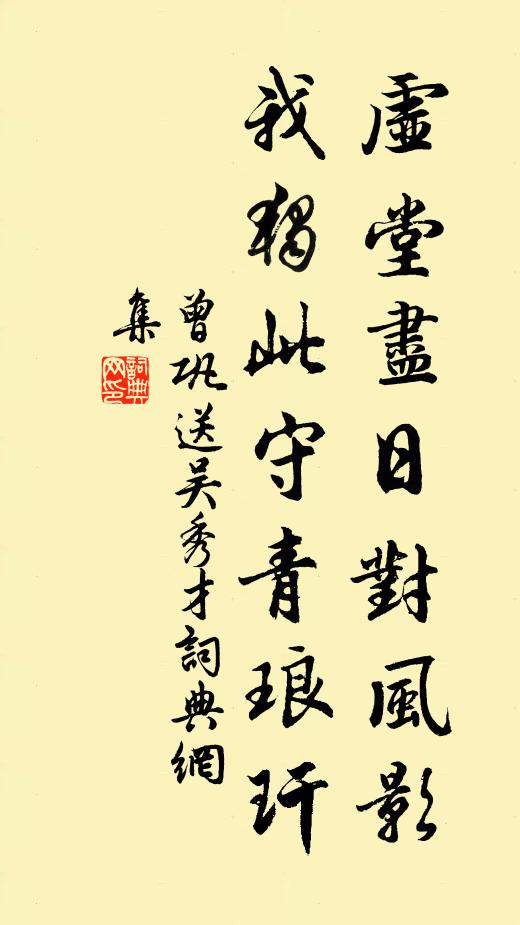 虛堂盡日對風影
我獨此守青琅玕
曾鞏送吴秀才詞典網
集
詞典網印